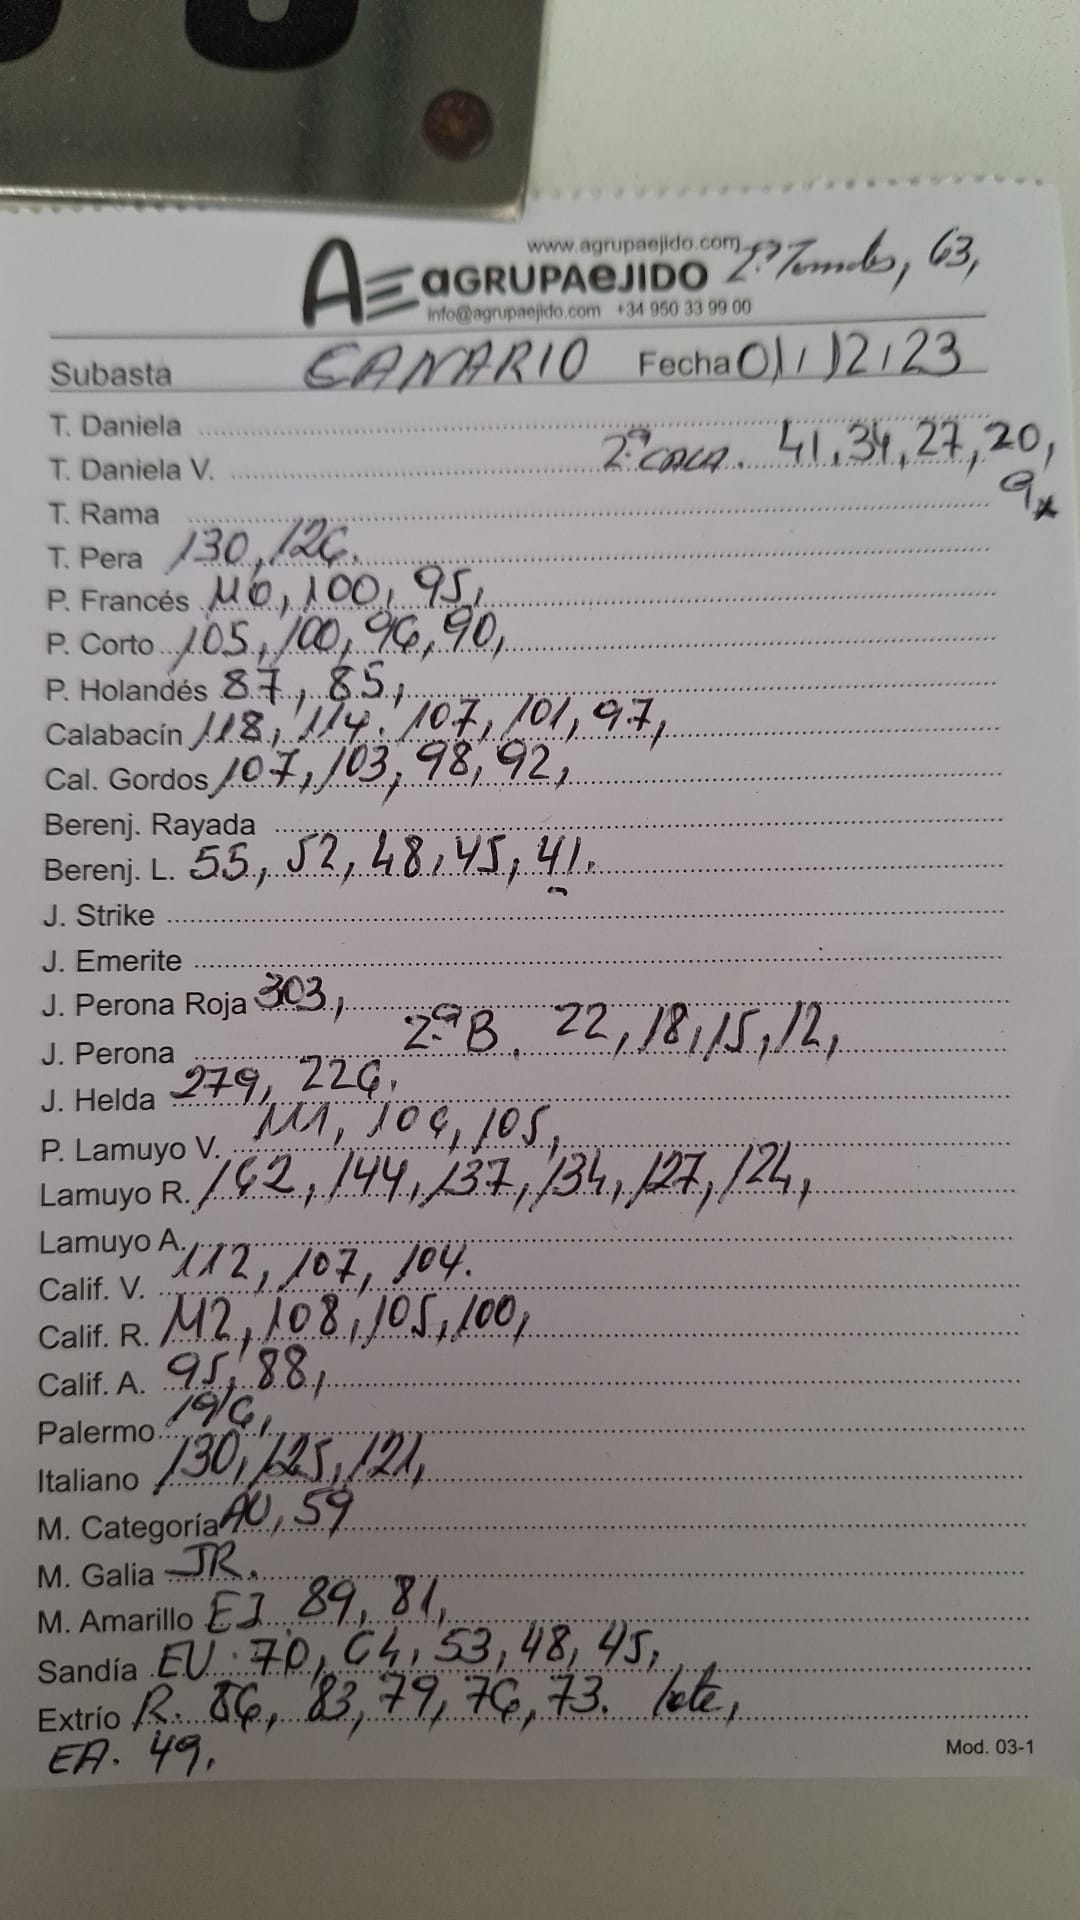 www.agrupaejido.com
2ª Tomates, 63,
AGRUPAEJIDO
info@agrupaejido.com +34 950 33 99 00
Subasta CANARIO Fecha 01/12/23
T. Daniela
T. Daniela V. 2ª CALA. 41, 34, 27, 20,
9*
T. Rama
T. Pera 130, 126.
P. Francés 116, 100, 95,
P. Corto 105, 100, 96, 90,
P. Holandés 87, 85,
Calabacín 118, 114. 107, 101, 97,
Cal. Gordos 107, 103, 98, 92,
Berenj. Rayada
Berenj. L. 55, 52, 48, 45, 41.
J. Strike
J. Emerite
J. Perona Roja 303,
J. Perona 2ª B. 22, 18, 15, 12,
J. Helda 279, 226.
P. Lamuyo V. 111, 106, 105,
Lamuyo R. 162, 144, 137, 134, 127, 124,
Lamuyo A.
Calif. V. 112, 107, 104.
Calif. R. 112, 108, 105, 100,
Calif. A. 95, 88,
Palermo 196,
Italiano 130, 125, 121,
M. Categoría AU, 59
M. Galia JR.
M. Amarillo EJ. 89, 81,
Sandía EU. 70, 64, 53, 48, 45,
Extrío R. 86, 83, 79, 76, 73. lote,
EA. 49.
Mod. 03-1